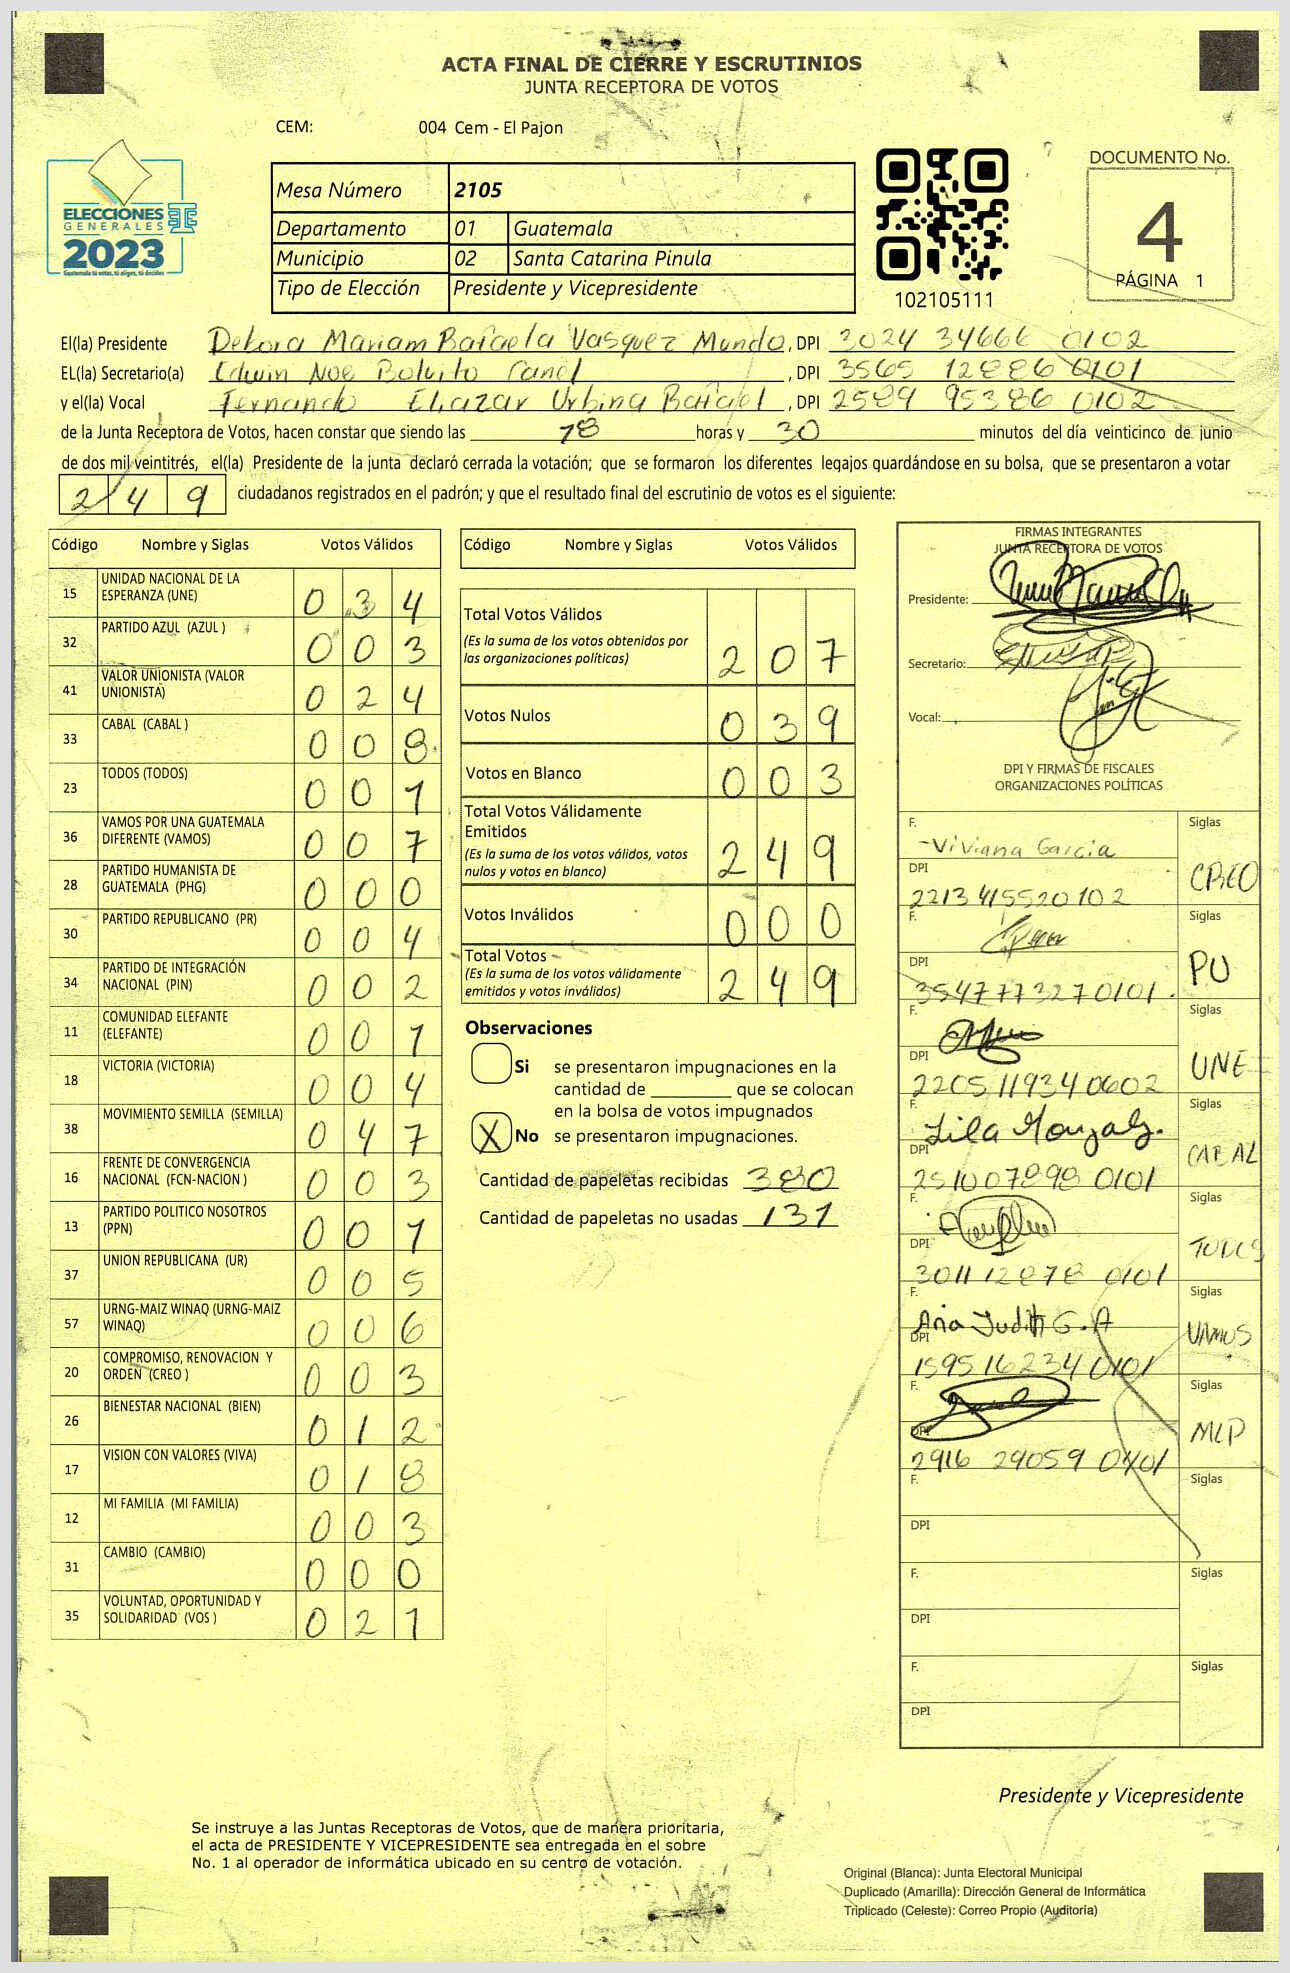 ACTA FINAL DE CIERRE Y ESCRUTINIOS
JUNTA RECEPTORA DE VOTOS
CEM: 004 Cem - El Pajon
ELECCIONES
GENERALES
2023
Guatemala tú votas, tú eliges, tú decides
Mesa Número 2105
Departamento 01 Guatemala
Municipio 02 Santa Catarina Pinula
Tipo de Elección Presidente y Vicepresidente
102105111
DOCUMENTO No.
4
PÁGINA 1
El(la) Presidente Debora Mariam Bafaela Vasquez Mundo, DPI 3024 34666 0102
EL(la) Secretario(a) Edwin Noe Bolvito Canel, DPI 3565 12886 0101
y el(la) Vocal Fernando Eliazar Urbina Bafael, DPI 2589 95386 0102
de la Junta Receptora de Votos, hacen constar que siendo las 18 horas y 30 minutos del día veinticinco de junio
de dos mil veintitrés, el(la) Presidente de la junta declaró cerrada la votación; que se formaron los diferentes legajos guardándose en su bolsa, que se presentaron a votar
249 ciudadanos registrados en el padrón; y que el resultado final del escrutinio de votos es el siguiente:
Código Nombre y Siglas Votos Válidos
15 UNIDAD NACIONAL DE LA ESPERANZA (UNE) 0 3 4
32 PARTIDO AZUL (AZUL ) 0 0 3
41 VALOR UNIONISTA (VALOR UNIONISTA) 0 2 4
33 CABAL (CABAL ) 0 0 8
23 TODOS (TODOS) 0 0 1
36 VAMOS POR UNA GUATEMALA DIFERENTE (VAMOS) 0 0 7
28 PARTIDO HUMANISTA DE GUATEMALA (PHG) 0 0 0
30 PARTIDO REPUBLICANO (PR) 0 0 4
34 PARTIDO DE INTEGRACIÓN NACIONAL (PIN) 0 0 2
11 COMUNIDAD ELEFANTE (ELEFANTE) 0 0 1
18 VICTORIA (VICTORIA) 0 0 4
38 MOVIMIENTO SEMILLA (SEMILLA) 0 4 7
16 FRENTE DE CONVERGENCIA NACIONAL (FCN-NACION ) 0 0 3
13 PARTIDO POLITICO NOSOTROS (PPN) 0 0 1
37 UNION REPUBLICANA (UR) 0 0 5
57 URNG-MAIZ WINAQ (URNG-MAIZ WINAQ) 0 0 6
20 COMPROMISO, RENOVACION Y ORDEN (CREO ) 0 0 3
26 BIENESTAR NACIONAL (BIEN) 0 1 2
17 VISION CON VALORES (VIVA) 0 1 8
12 MI FAMILIA (MI FAMILIA) 0 0 3
31 CAMBIO (CAMBIO) 0 0 0
35 VOLUNTAD, OPORTUNIDAD Y SOLIDARIDAD (VOS ) 0 2 1
Código Nombre y Siglas Votos Válidos
Total Votos Válidos
(Es la suma de los votos obtenidos por
las organizaciones políticas) 2 0 7
Votos Nulos 0 3 9
Votos en Blanco 0 0 3
Total Votos Válidamente
Emitidos
(Es la suma de los votos válidos, votos
nulos y votos en blanco) 2 4 9
Votos Inválidos 0 0 0
Total Votos
(Es la suma de los votos válidamente
emitidos y votos inválidos) 2 4 9
Observaciones
Si se presentaron impugnaciones en la
cantidad de ________ que se colocan
en la bolsa de votos impugnados
X No se presentaron impugnaciones.
Cantidad de papeletas recibidas 380
Cantidad de papeletas no usadas 131
FIRMAS INTEGRANTES
JUNTA RECEPTORA DE VOTOS
Presidente:
Secretario:
Vocal:
DPI Y FIRMAS DE FISCALES
ORGANIZACIONES POLÍTICAS
F. Viviana Garcia Siglas
DPI 2213 41552 0102 CREO
F. Siglas
DPI 3547773270101 PU
F. Siglas
DPI 2205 11934 0602 UNE
F. Lila Siglas
DPI 251007898 0101 CABAL
F. Siglas
DPI 3011 12878 0101 TODOS
F. Ana Judith G. A Siglas
DPI 1595 16234 0101 VAMOS
F. Siglas
DPI 2916 29059 0401 MLP
F. Siglas
DPI
F. Siglas
DPI
F. Siglas
DPI
Presidente y Vicepresidente
Se instruye a las Juntas Receptoras de Votos, que de manera prioritaria,
el acta de PRESIDENTE Y VICEPRESIDENTE sea entregada en el sobre
No. 1 al operador de informática ubicado en su centro de votación.
Original (Blanca): Junta Electoral Municipal
Duplicado (Amarilla): Dirección General de Informática
Triplicado (Celeste): Correo Propio (Auditoría)